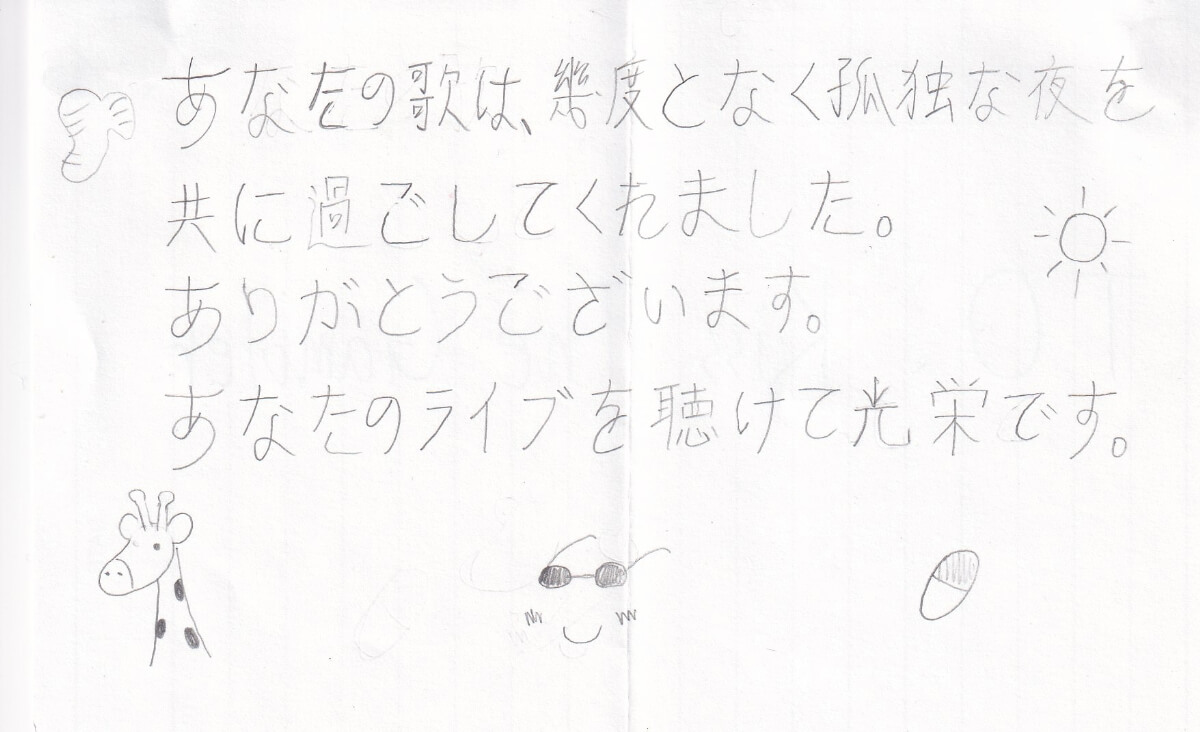 あなたの歌は、幾度となく孤独な夜を
共に過ごしてくれました。
ありがとうございます。
あなたのライブを聴けて光栄です。